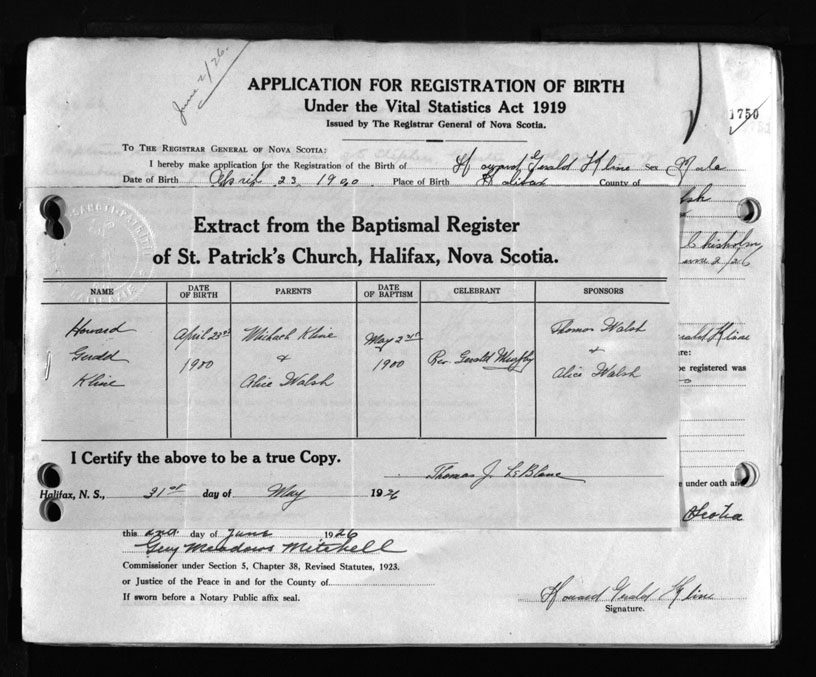 June 2/26.
APPLICATION FOR REGISTRATION OF BIRTH
Under the Vital Statistics Act 1919
Issued by The Registrar General of Nova Scotia.
1750
TO THE REGISTRAR GENERAL OF NOVA SCOTIA:
I hereby make application for the Registration of the Birth of Howard Gerald Kline sex Male
Date of Birth April 23 1900 Place of Birth Halifax County of
Extract from the Baptismal Register
of St. Patrick's Church, Halifax, Nova Scotia.
Chisholm
June 2/26
NAME DATE OF BIRTH PARENTS DATE OF BAPTISM CELEBRANT SPONSORS
Howard April 23rd Michael Kline May 2nd Thomas Walsh
Gerald 1900 & 1900 Rev. Gerald Murphy &
Kline Alice Walsh Alice Walsh
Gerald Kline
be registered was
I Certify the above to be a true Copy.
Thomas J. LeBlanc
under oath and
Halifax, N. S., 31st day of May 1926
Scotia
this 2nd day of June 1926
Guy Meadows Mitchell
Commissioner under Section 5, Chapter 38, Revised Statutes, 1923.
or Justice of the Peace in and for the County of
If sworn before a Notary Public affix seal.
Howard Gerald Kline
Signature.